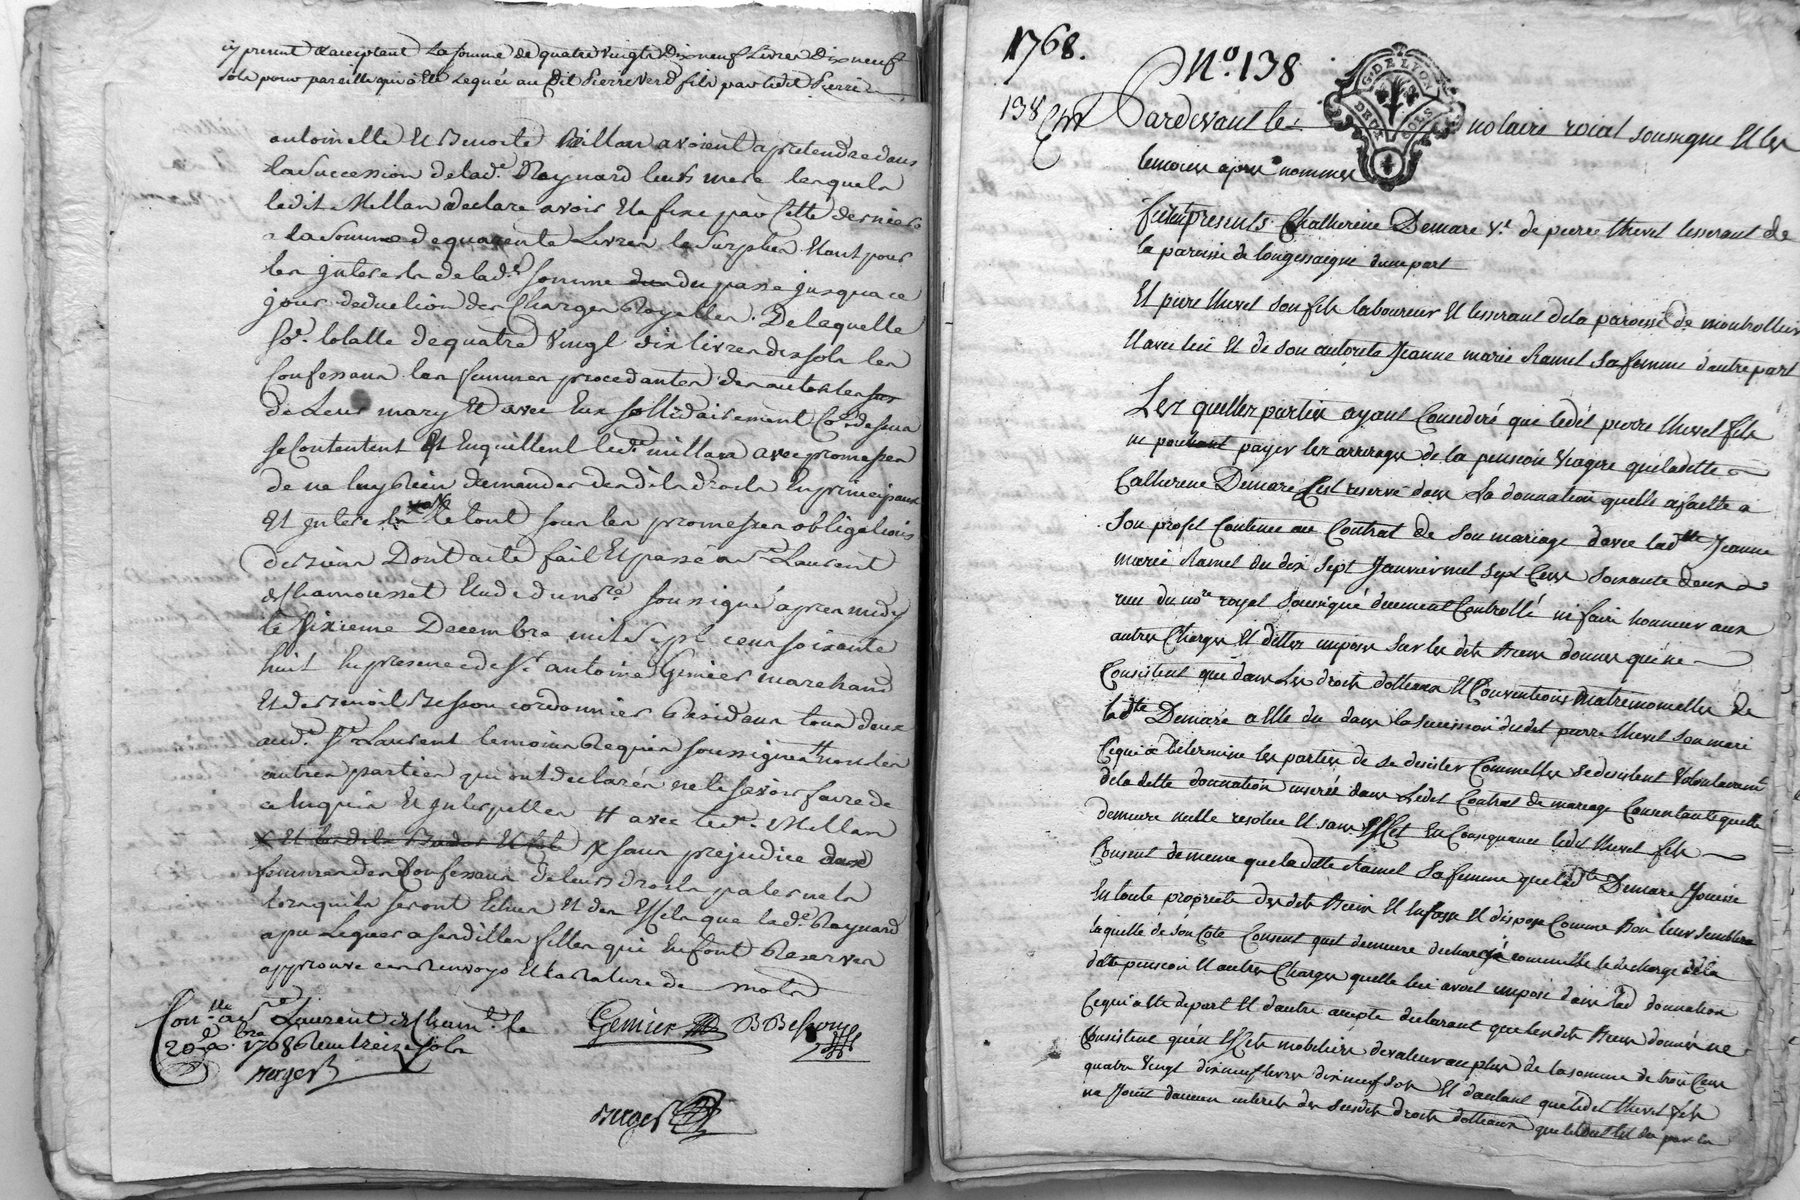 cy present & acceptant La somme de quatre vingts Dix neuf Livres Dix neuf
sols pour pareille qui a Eté Leguée au dit Pierre Verd fils par ledit Pierre
antoinette Et Benoite Millan avoient a pretendre dans
la Succession de lad.e Raynard leurs mere laquelle
ledit Millan declare avoir Eté fixé par cette derniere
a la somme de quarente Livres le Surplus Etant pour
les jnterests de lad.e somme du passé jusqua ce
jour deduction des Charges Royalles. De laquelle
so.e totalle de quatre vingt dix livres dix sols les
Confessans les femmes procedantes des autorites
de Leurs mary Et avec Eux sollidairement
se Contentent Et Enquittent led. millan avec promesses
de ne luy Rien demander desdits droits En principaux
Et jnterests le tout sous les promesses obligations
Dont acte fait Et passé a S.t Laurent
de Chamousset Etude du no.re soussigné apres midy
le sixieme Decembre mil sept cens soixante
huit En presence de S.r antoine Gemier marchand
Et de Benoit Besson cordonnier Residans tous deux
aud. S.t Laurent temoins Requis soussignés non les
autres parties qui ont declarés ne le sçavoir faire de
ce Enquis Et jnterpellés # avec led. Millan
x sans prejudice
femmes des Confessans de leurs droits paternels
lorsquils seront Echus Et des Effets que lad.e Raynard
a pu Leguer a sesdittes filles qui En font Reserves
approuvé ces Renvoys Et la Rature de mots
Con.lle a S.t Laurent de Cham.t le
20 x.bre 1768 Reçu treize sols
Berger
Gemier B Besson
Berger
1768.
N.o 138
G. DE LYON
DEUX SOLS
138 Pardevant le notaire roial soussigné Et les
temoins apres nommés
furent presents Chatherine Demare v.e de pierre thevet tisserant de
la paroisse de longessaigne d'une part
Et pierre thevet son fils laboureur Et tisserant de la paroisse de montrottier
Et avec lui Et de son autorité Jeanne marie Ramel sa femme d'autre part
Lesquelles parties ayant Consideré que ledit pierre thevet fils
ne pouvant payer les arrerages de la pension viagere que ladette
Catherine Demare s'est reservé dans La donnation quelle a faitte a
son profit Contenue au Contrat de son mariage d'avec lad.tte Jeanne
marie Ramel du dix sept Janvier mil sept Cens soixante deux
reçu du no.re royal soussigné duement Controllé ni faire honneur aux
autres Charges Et dettes imposé sur les dits Biens donnés qui ne
Consistent que dans Les droits dotteaux Et Conventions matrimonielles de
lad.tte Demare a Elle du dans la succession dudit pierre thevet son mari
Ce qui a determiné les parties de se desister Comme Elles se desistent volontairem.t
de la dette donnation inserée dans Ledit Contrat de mariage Consentant quelle
demeure nulle resolue Et sans Effet En Consequance ledit thevet fils
Consent de meme que la ditte Ramel sa femme que lad.tte Demare Jouisse
En toute proprieté des dits Biens Et En fasse Et dispose Comme Bon leur semblera
laquelle de son coté Consent quil demeure dechargé comme Elle le decharge de la
dette pension Et autres Charges quelle lui avoit imposé dans lad. donnation
Ce qui a Eté de part Et d'autre accepté declarant que lesdits Biens donnés ne
Consistent qu'en Effets mobiliers de valeur au plus de la somme de trois Cens
quatre vingt dix neuf livres dix neuf sols Et d'autant que ledit thevet fils
ne Jouit d'aucun interets des susdits droits dotteaux que